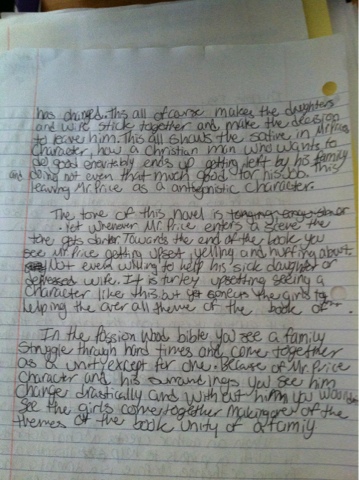 has changed. This all of course makes the daughters
and wife stick together and make the decision
to leave him. This all shows the satire in Mr. Prices
Character, how a Christian man who wants to
do good enevitably ends up getting left by his family
and doing not even that much good for his job. This
leaving Mr. Price as a antigonistic character.
The tone of this novel is
. Yet whenever Mr. Price enters a scene the
tone gets darker. Towards the end of the book you
see Mr. Price getting upset, yelling and huffing about
Not even willing to help his sick daughter or
depressed wife. It is turley upsetting seeing a
Character like this but the girls to
helping the over all theme of the book of
In the Possion Wood bible you see a family
Struggle through hard times and come together
as a unity except for one. Because of Mr. Price
Character and his surrondings you see him
Change drastically and without him you
See the girls come together Making one of the
themes of the book unity of a family